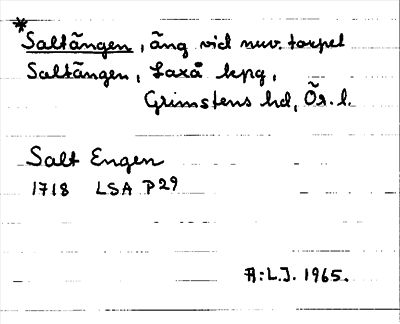 *Saltängen, äng vid nuv. torpet
Saltängen, Laxå kpg,
Grimstens hd, Ör. l.
Salt Engen
1718 LSA P29
A:L.J. 1965.